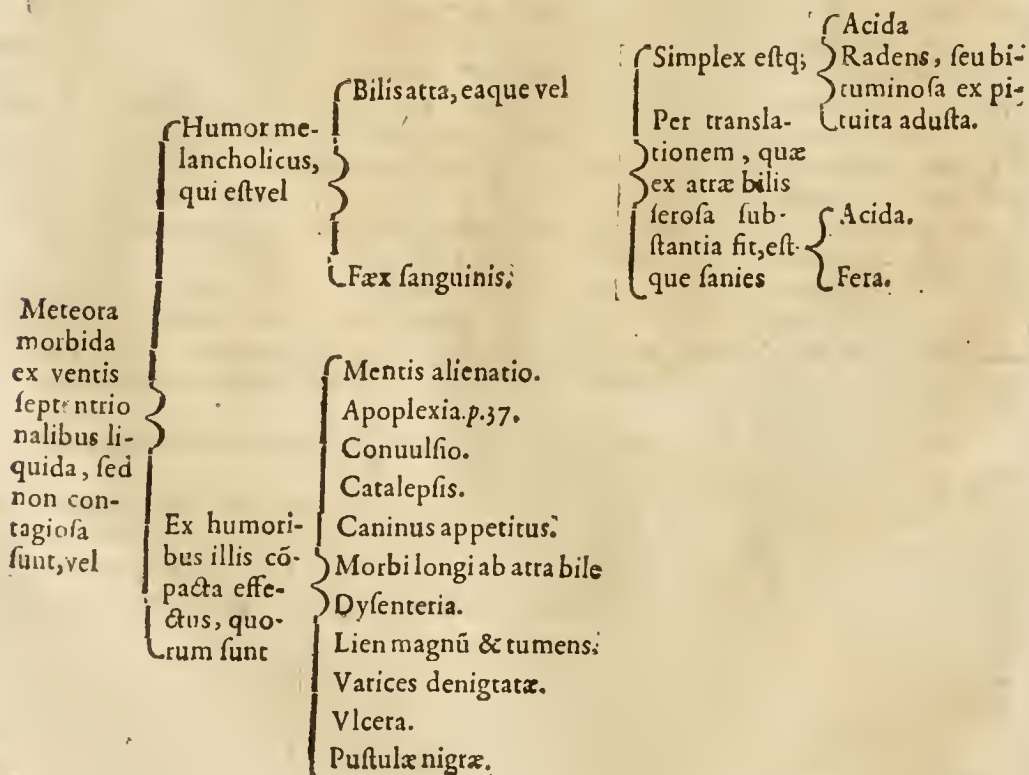 Meteora
morbida
ex ventis
septentrio
nalibus li-
quida, sed
non con-
tagiosa
sunt, vel
Humor me-
lancholicus,
qui est vel
Bilis atta, eaque vel
Simplex estq;
Acida
Radens, seu bi-
tuminosa ex pi-
tuita adusta.
Per transla-
tionem, quæ
ex atræ bilis
serosa sub-
stantia fit, est-
que sanies
Acida.
Fera.
Fæx sanguinis.
Ex humori-
bus illis cõ-
pacta effe-
ctus, quo-
rum sunt
Mentis alienatio.
Apoplexia. p.37.
Conuulsio.
Catalepsis.
Caninus appetitus.
Morbi longi ab atra bile
Dysenteria.
Lien magnũ & tumens.
Varices denigtatæ.
Vlcera.
Pustulæ nigræ.